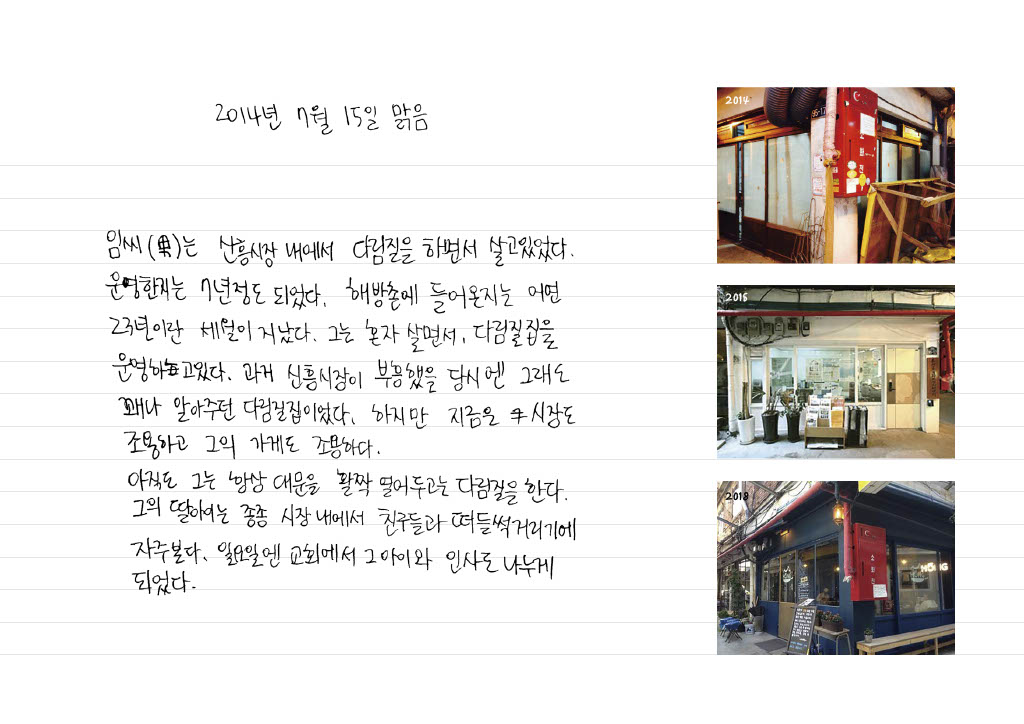 2014년 7월 15일 맑음
임씨(男)는 신흥시장 내에서 다림질을 하면서 살고있었다.
운영한지는 7년정도 되었다. 해방촌에 들어온지는 어언
23년이란 세월이 지났다. 그는 혼자 살면서, 다림질집을
운영하고있다. 과거 신흥시장이 부흥했을 당시엔 그래도
꽤나 알아주던 다림질집이었다. 하지만 지금은 시장도
조용하고 그의 가게도 조용하다.
아직도 그는 항상 대문을 활짝 열어두고는 다림질을 한다.
그의 딸아이는 종종 시장 내에서 친구들과 떠들썩거리기에
자주본다. 일요일엔 교회에서 그아이와 인사도 나누게
되었다.
2014
95-17
소화전
2015
2018
소화전
HŌNG